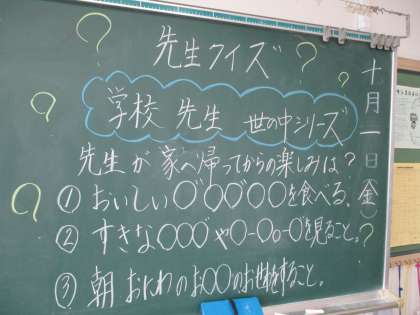 先生クイズ
学校 先生 世の中シリーズ
先生が家へ帰ってからの楽しみは?
① おいしい〇゛〇゛〇゛〇〇を食べる、
② すきな〇〇〇゛や〇-〇o-〇゛を見ること。
③ 朝おにわのお〇〇のお世話をすること。
十月一日(金)